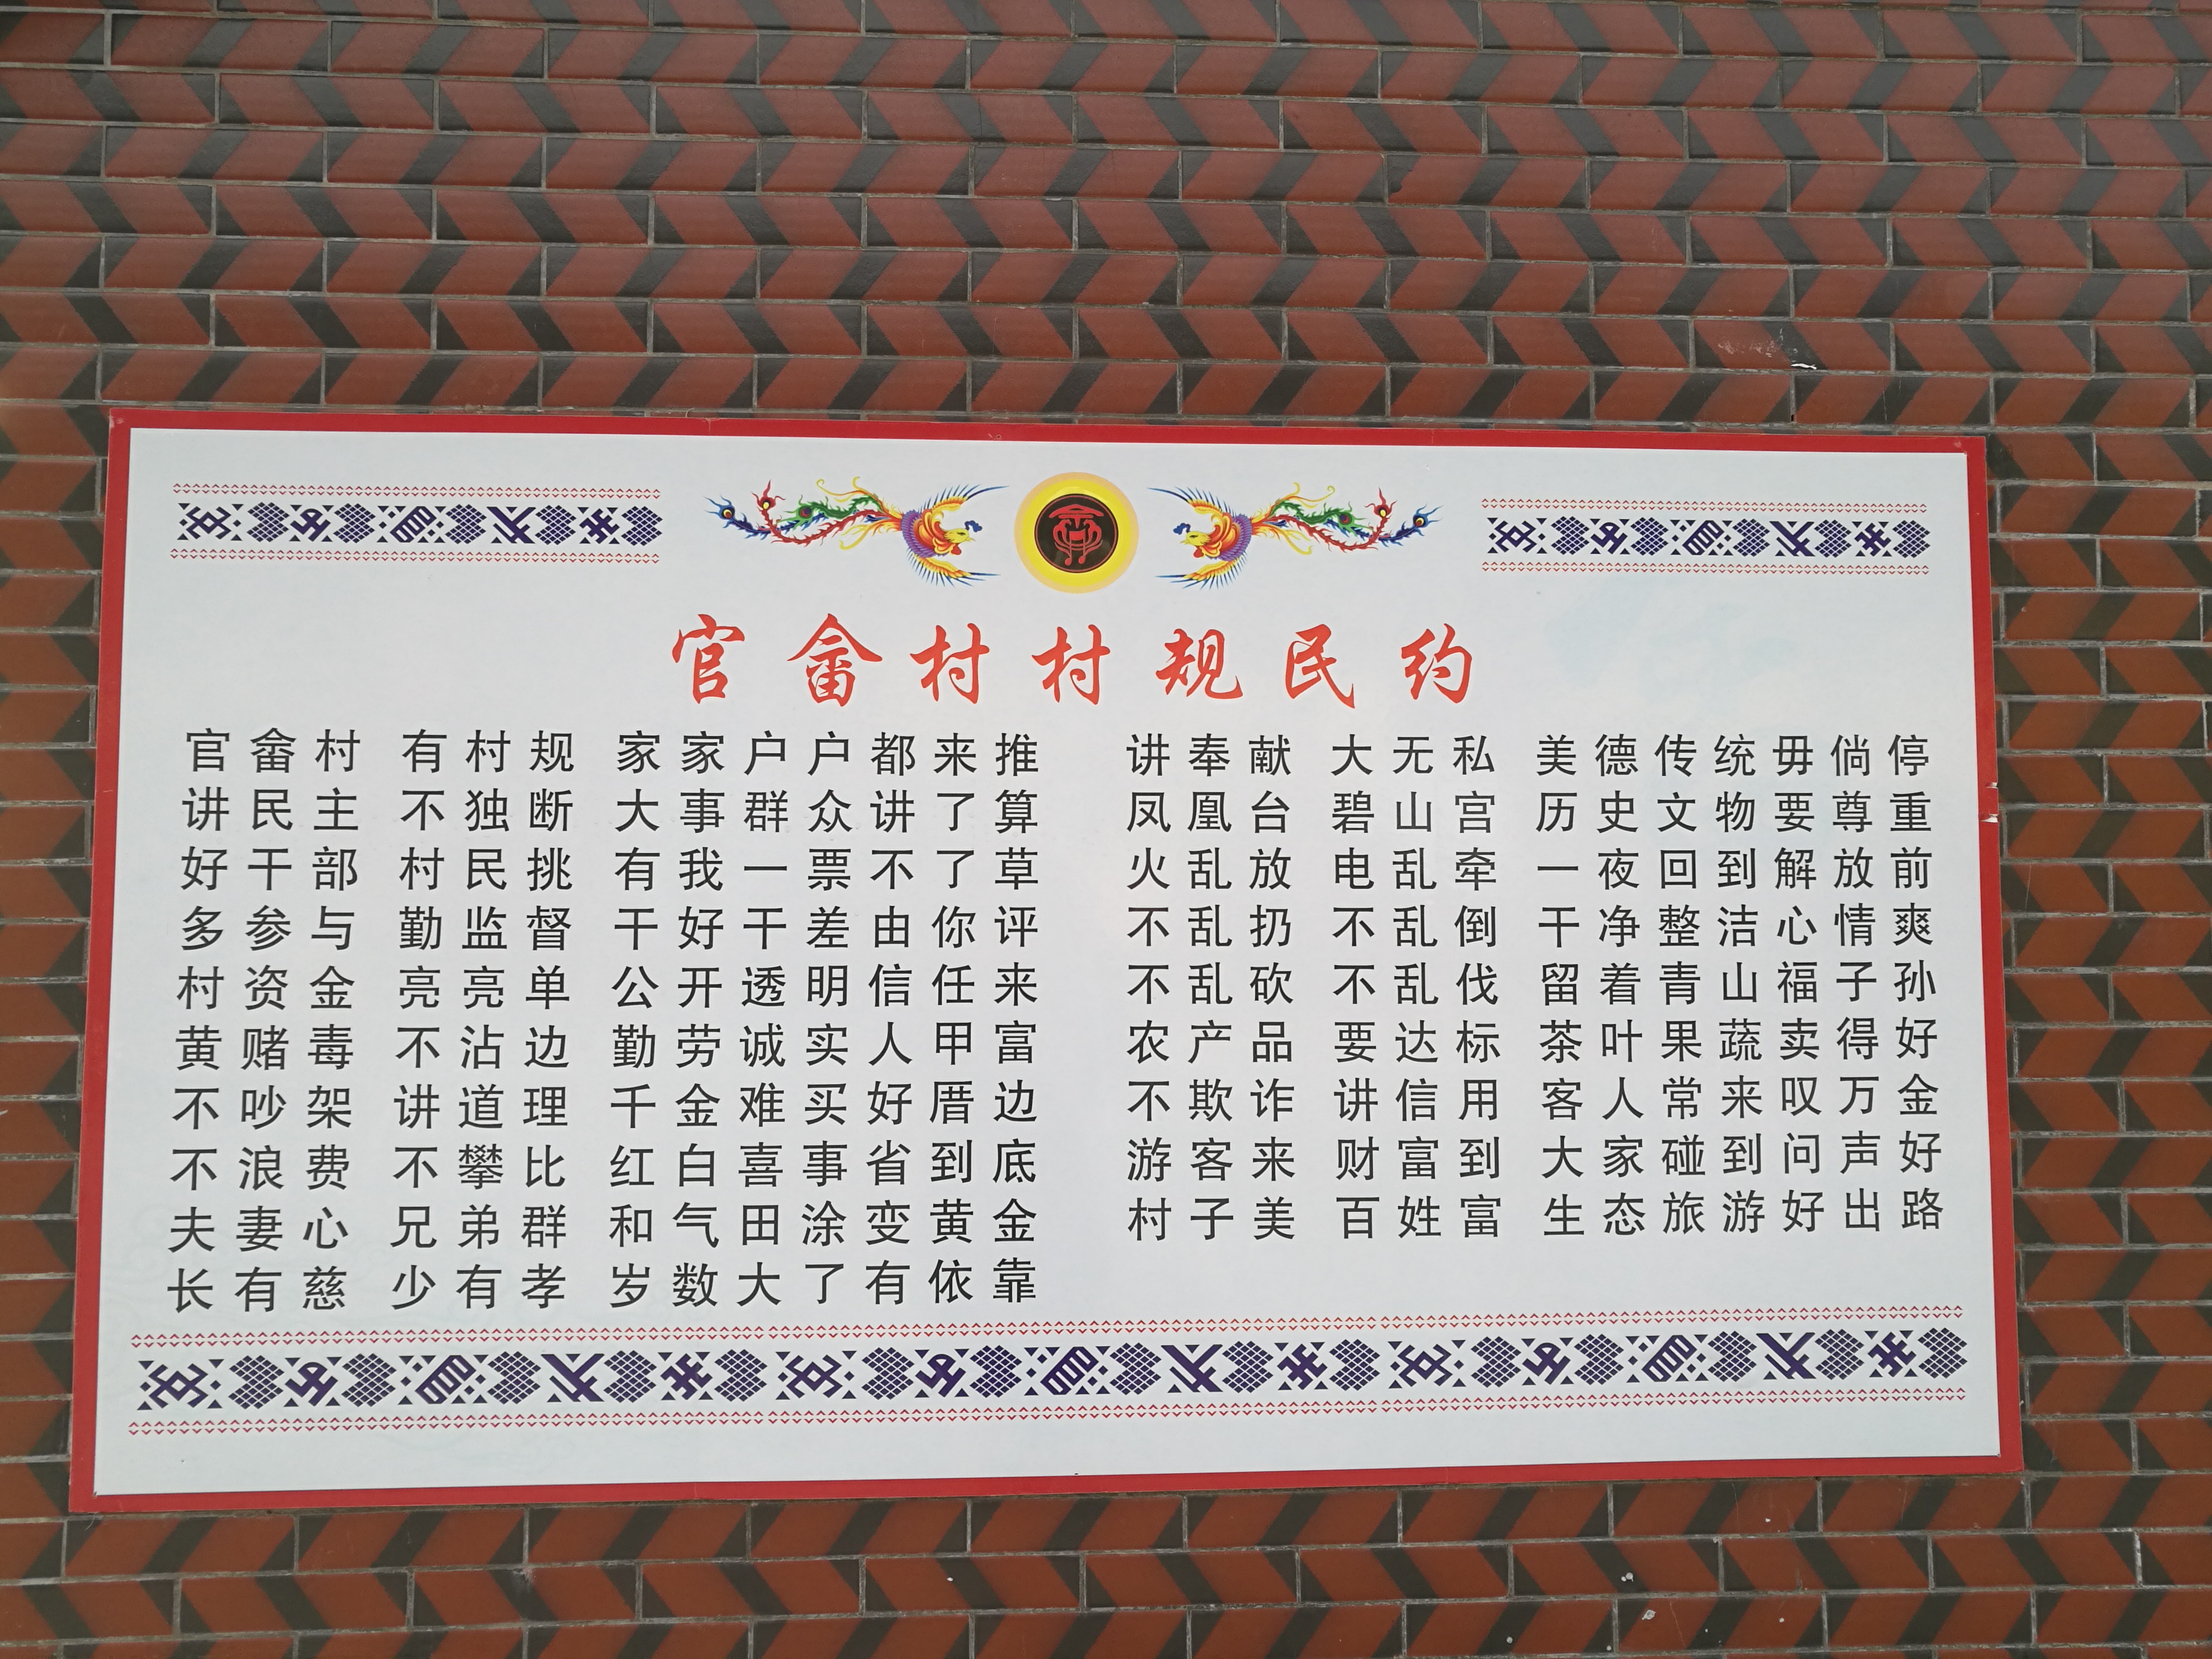 官畲村村规民约
官畲村 有村规 家家户户都来推
讲民主 不独断 大事群众讲了算
好干部 村民挑 有我一票不了草
多参与 勤监督 干好干差由你评
村资金 亮亮单 公开透明信任来
黄赌毒 不沾边 勤劳诚实人甲富
不吵架 讲道理 千金难买好厝边
不浪费 不攀比 红白喜事省到底
夫妻心 兄弟群 和气田涂变黄金
长有慈 少有孝 岁数大了有依靠
讲奉献 大无私 美德传统毋倘停
凤凰台 碧山宫 历史文物要尊重
火乱放 电乱牵 一夜回到解放前
不乱扔 不乱倒 干净整洁心情爽
不乱砍 不乱伐 留着青山福子孙
农产品 要达标 茶叶果蔬卖得好
不欺诈 讲信用 客人常来叹万金
游客来 财富到 大家碰到问声好
村子美 百姓富 生态旅游好出路